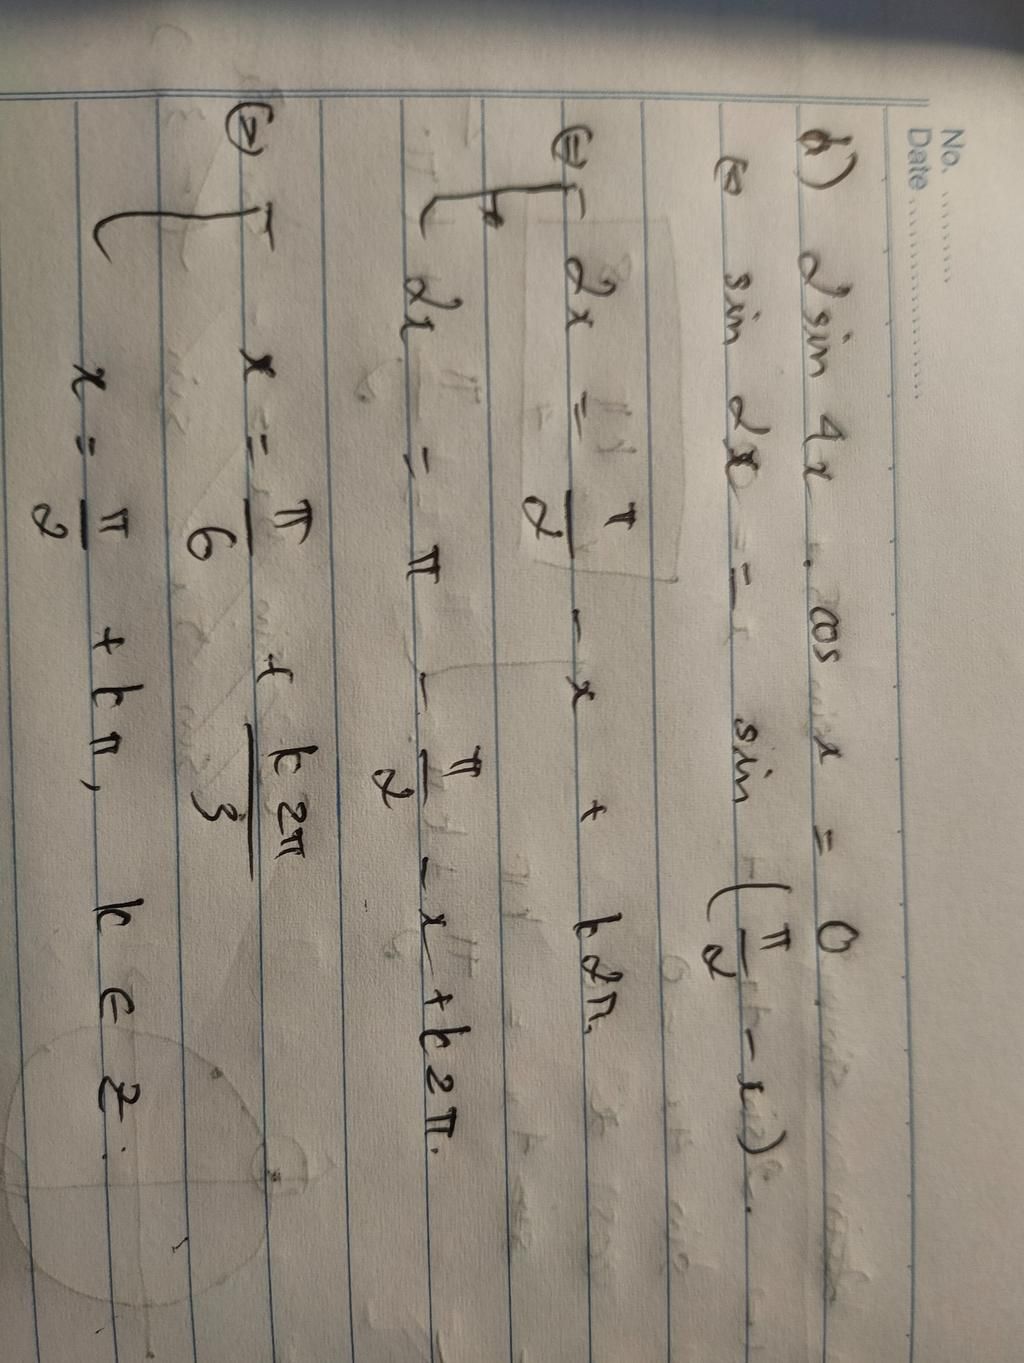 No. ..........
Date ........................
b) 2 sin 4x . cos x = 0
⇔ sin 2x = sin (π/2 - x).
⇔ [ 2x = π/2 - x + k2π.
2x = π - π/2 - x + k2π.
⇔ [ x = π/6 + k2π/3
x = π/2 + kπ, k ∈ Z.